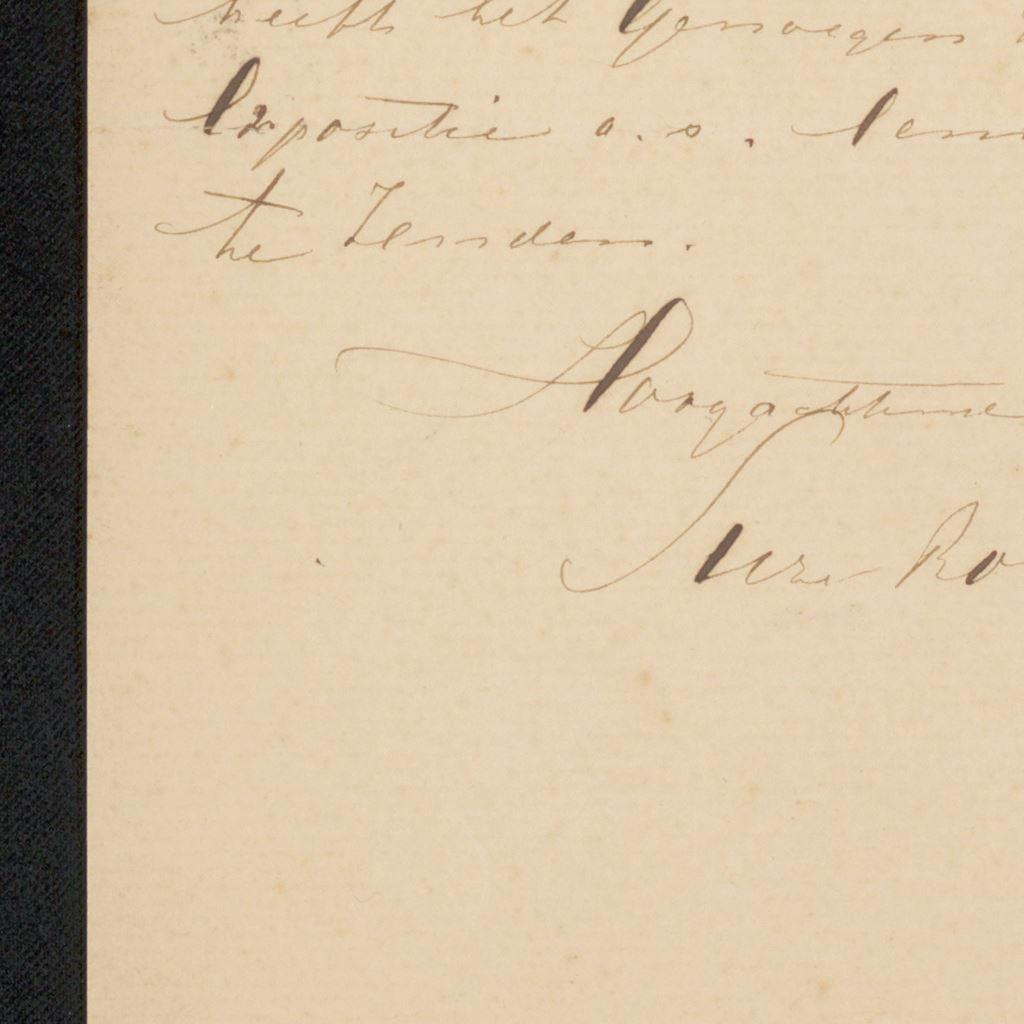 heeft het genoegen
Expositie a.s.
te zenden.
Hoogachtend
Suze Ro